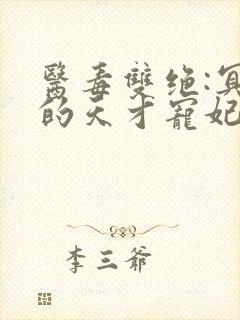 醫毒雙绝:冥
的天才寵妃
李三爺